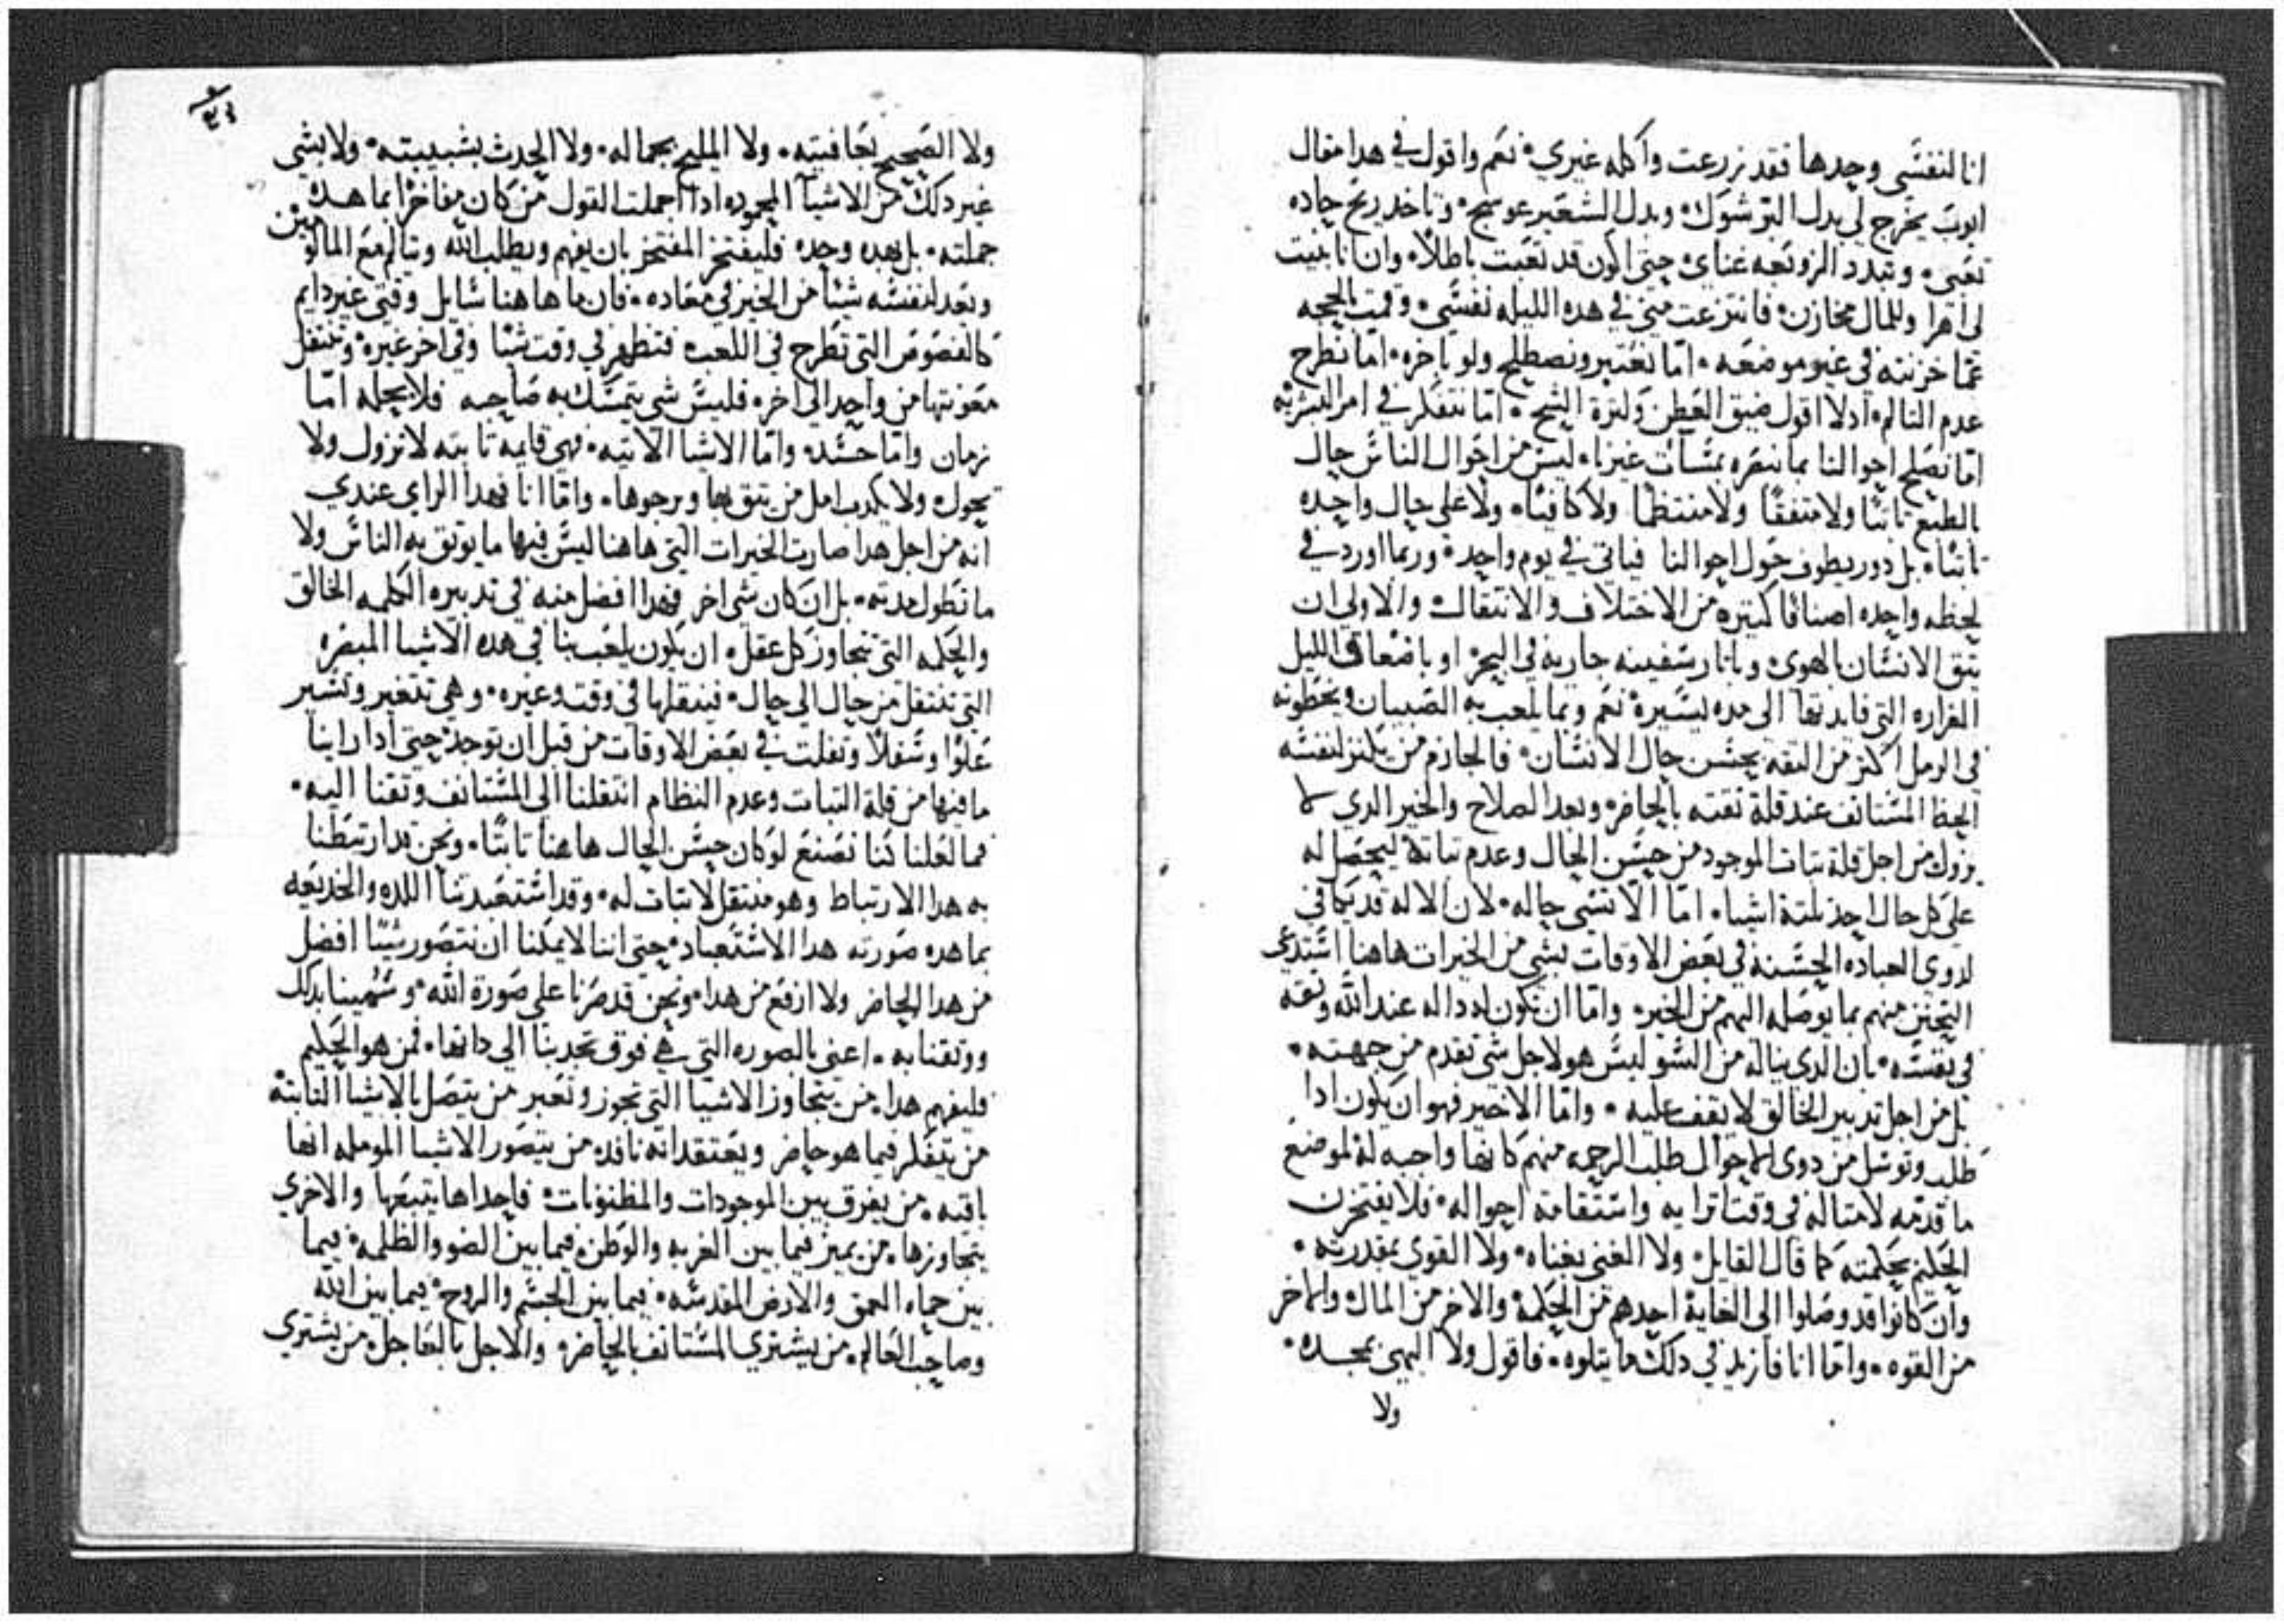 انا لنفسي وحدها فقد زرعت واكله غيري. نعم واقول في هدا مقال
ايوب يخرج لي بدل البر شوك. وبدل الشعير عوسج. وتاخد ريح حاده
تعبي. وتبدد الزوبعه عناي. حتى اكون قد تعبت باطلا. وان انا بنيت
لي اهرا وللمال مخازن. فانتزعت مني في هده الليله نفسي. وقمت بالحجه
عما خزنته في غير موضعه. اما نعتبر ونصطلح ولو باخره. اما نطرح
عدم التالم. ادلا اقول ضيق العطن وكثرة الشح. اما نتفكر في امر البشريه
اما نصلح احوالنا بما نبصره بمسات غيرنا. ليس من احوال الناس حال
بالطبع تابتا ولا متفقا ولا منتظما ولا كافيا. ولا على حال واحده
تابتا. بل دور يطوف حول احوالنا فياتي في يوم واحد. وربما اورد في
لحظه واحده اصنافا كثيره من الاختلاف والانتقال. والاولى ان
يتق الانسان بالهوى. وباتار سفينه جاريه في البحر. او باضغات الليل
الغراره التي فايدتها الى مده يسيره. نعم وبما يلعب به الصبيان ويخطونه
في الرمل اكتر من التقه بحسن حال الانسان. فالحازم من يكنز لنفسه
الحظ المستانف عند قلة تقته بالحاضر. ويعد الصلاح والخير الدي لا
يزول من اجل قلة تبات الموجود من حسن الحال وعدم تباته ليحصل له
على كل حال احد تلتة اشيا. اما الا تسي حاله. لان الاله قد يكافي
لدوي العباده الحسنه في بعض الاوقات بشي من الخيرات هاهنا استدعى
التحنن منهم بما يوصله اليهم من الخير. واما ان تكون له داله عند الله وتقه
في نفسه. بان الدي يناله من السو ليس هو لاجل شي تقدم من جهته.
بل من اجل تدبير الخالق لا يقف عليه. واما الاخير فهو ان يكون ادا
طلب وتوسل من دوي الاحوال طلب الرحمه منهم كانها واجبه له لموضع
ما قدمه لامتاله في وقت ترايه واستقامة احواله. فلا يفتخرن
الحكيم بحكمته كما قال القايل. ولا الغني بغناه. ولا القوي بمقدرته.
وان كانوا قد وصلوا الى الغايه احدهم من الحكمه والاخر من المال. والاخر
من القوه. واما انا فازيد في دلك ما يتلوه. فاقول ولا البهي بمجده.
ولا
ولا الصحيح بعافيته. ولا المليح بجماله. ولا الحدث بشبيبته. ولا بشي
غير دلك من الاشيا المحموده ادا اجملت القول من كان مفاخرا بما هده
جملته. بل بهده وحده فليفتخر المفتخر بان يفهم ويطلب الله ويتالم مع المالومين
ويعد لنفسه شيا من الخير في معاده. فان ما هاهنا سايل وقتي غير دايم
كالفصوص التي تطرح في اللعب. فتظهر في وقت شيا وفي اخر غيره. وتنتقل
معونتها من واحد الى اخر. فليس شي يتمسك به صاحبه فلا يحله اما
زمان واما حسد. واما الاشيا الاتيه. فهي قايمه تابته لا تزول ولا
تحول. ولا يكدب امل من يتق بها ويرجوها. واما انا فهدا الراي عندي
انه من اجل هدا صارت الخيرات التي هاهنا ليس فيها ما يوتق به الناس ولا
ما تطول مدته. بل ان كان شي اخر فهدا افضل منه في تدبيره الكلمه الخالق
والحكمه التي تتجاوز كل عقل. ان يكون يلعب بنا في هده الاشيا المبصره
التي تنتقل من حال الى حال. فينقلها في وقت وغيره. وهي تتغير وتسير
علوا وسفلا وتفلت في بعض الاوقات من قبل ان توخد. حتى ادا راينا
ما فيها من قلة التبات وعدم النظام انتقلنا الى المستانف وتقنا اليه.
فما لعلنا كنا نصنع لو كان حسن الحال هاهنا تابتا. ونحن قد ارتبطنا
به هدا الارتباط وهو منتقل لا تبات له. وقد استعبدتنا اللده والخديعه
بما هده صورته هدا الاستعباد. حتى اننا لا يمكنا ان نتصور شيا افضل
من هدا الحاضر ولا ارفع من هدا. ونحن قد صرنا على صورة الله. وسمينا بدلك
ووتقنا به. اعني بالصوره التي هي فوق تجدبنا الى داتها. فمن هو الحكيم
فليفهم هدا. من يتجاوز الاشيا التي تجوز وتعبر من يتصل بالاشيا التابته
من يتفكر فيما هو حاضر ويعتقد انه نافد. من يتصور الاشيا المومله انها
باقيه. من يفرق بين الموجودات والمظنونات. فاحداها يتبعها والاخرى
يتجاوزها. من يميز فيما بين الغربه والوطن. فيما بين الضو والظلمه. فيما
بين حماه العمق والارض المقدسه. فيما بين الجسم والروح. فيما بين الله
وصاحب العالم. من يشتري المستانف بالحاضر. والاجل بالعاجل. من يشتري